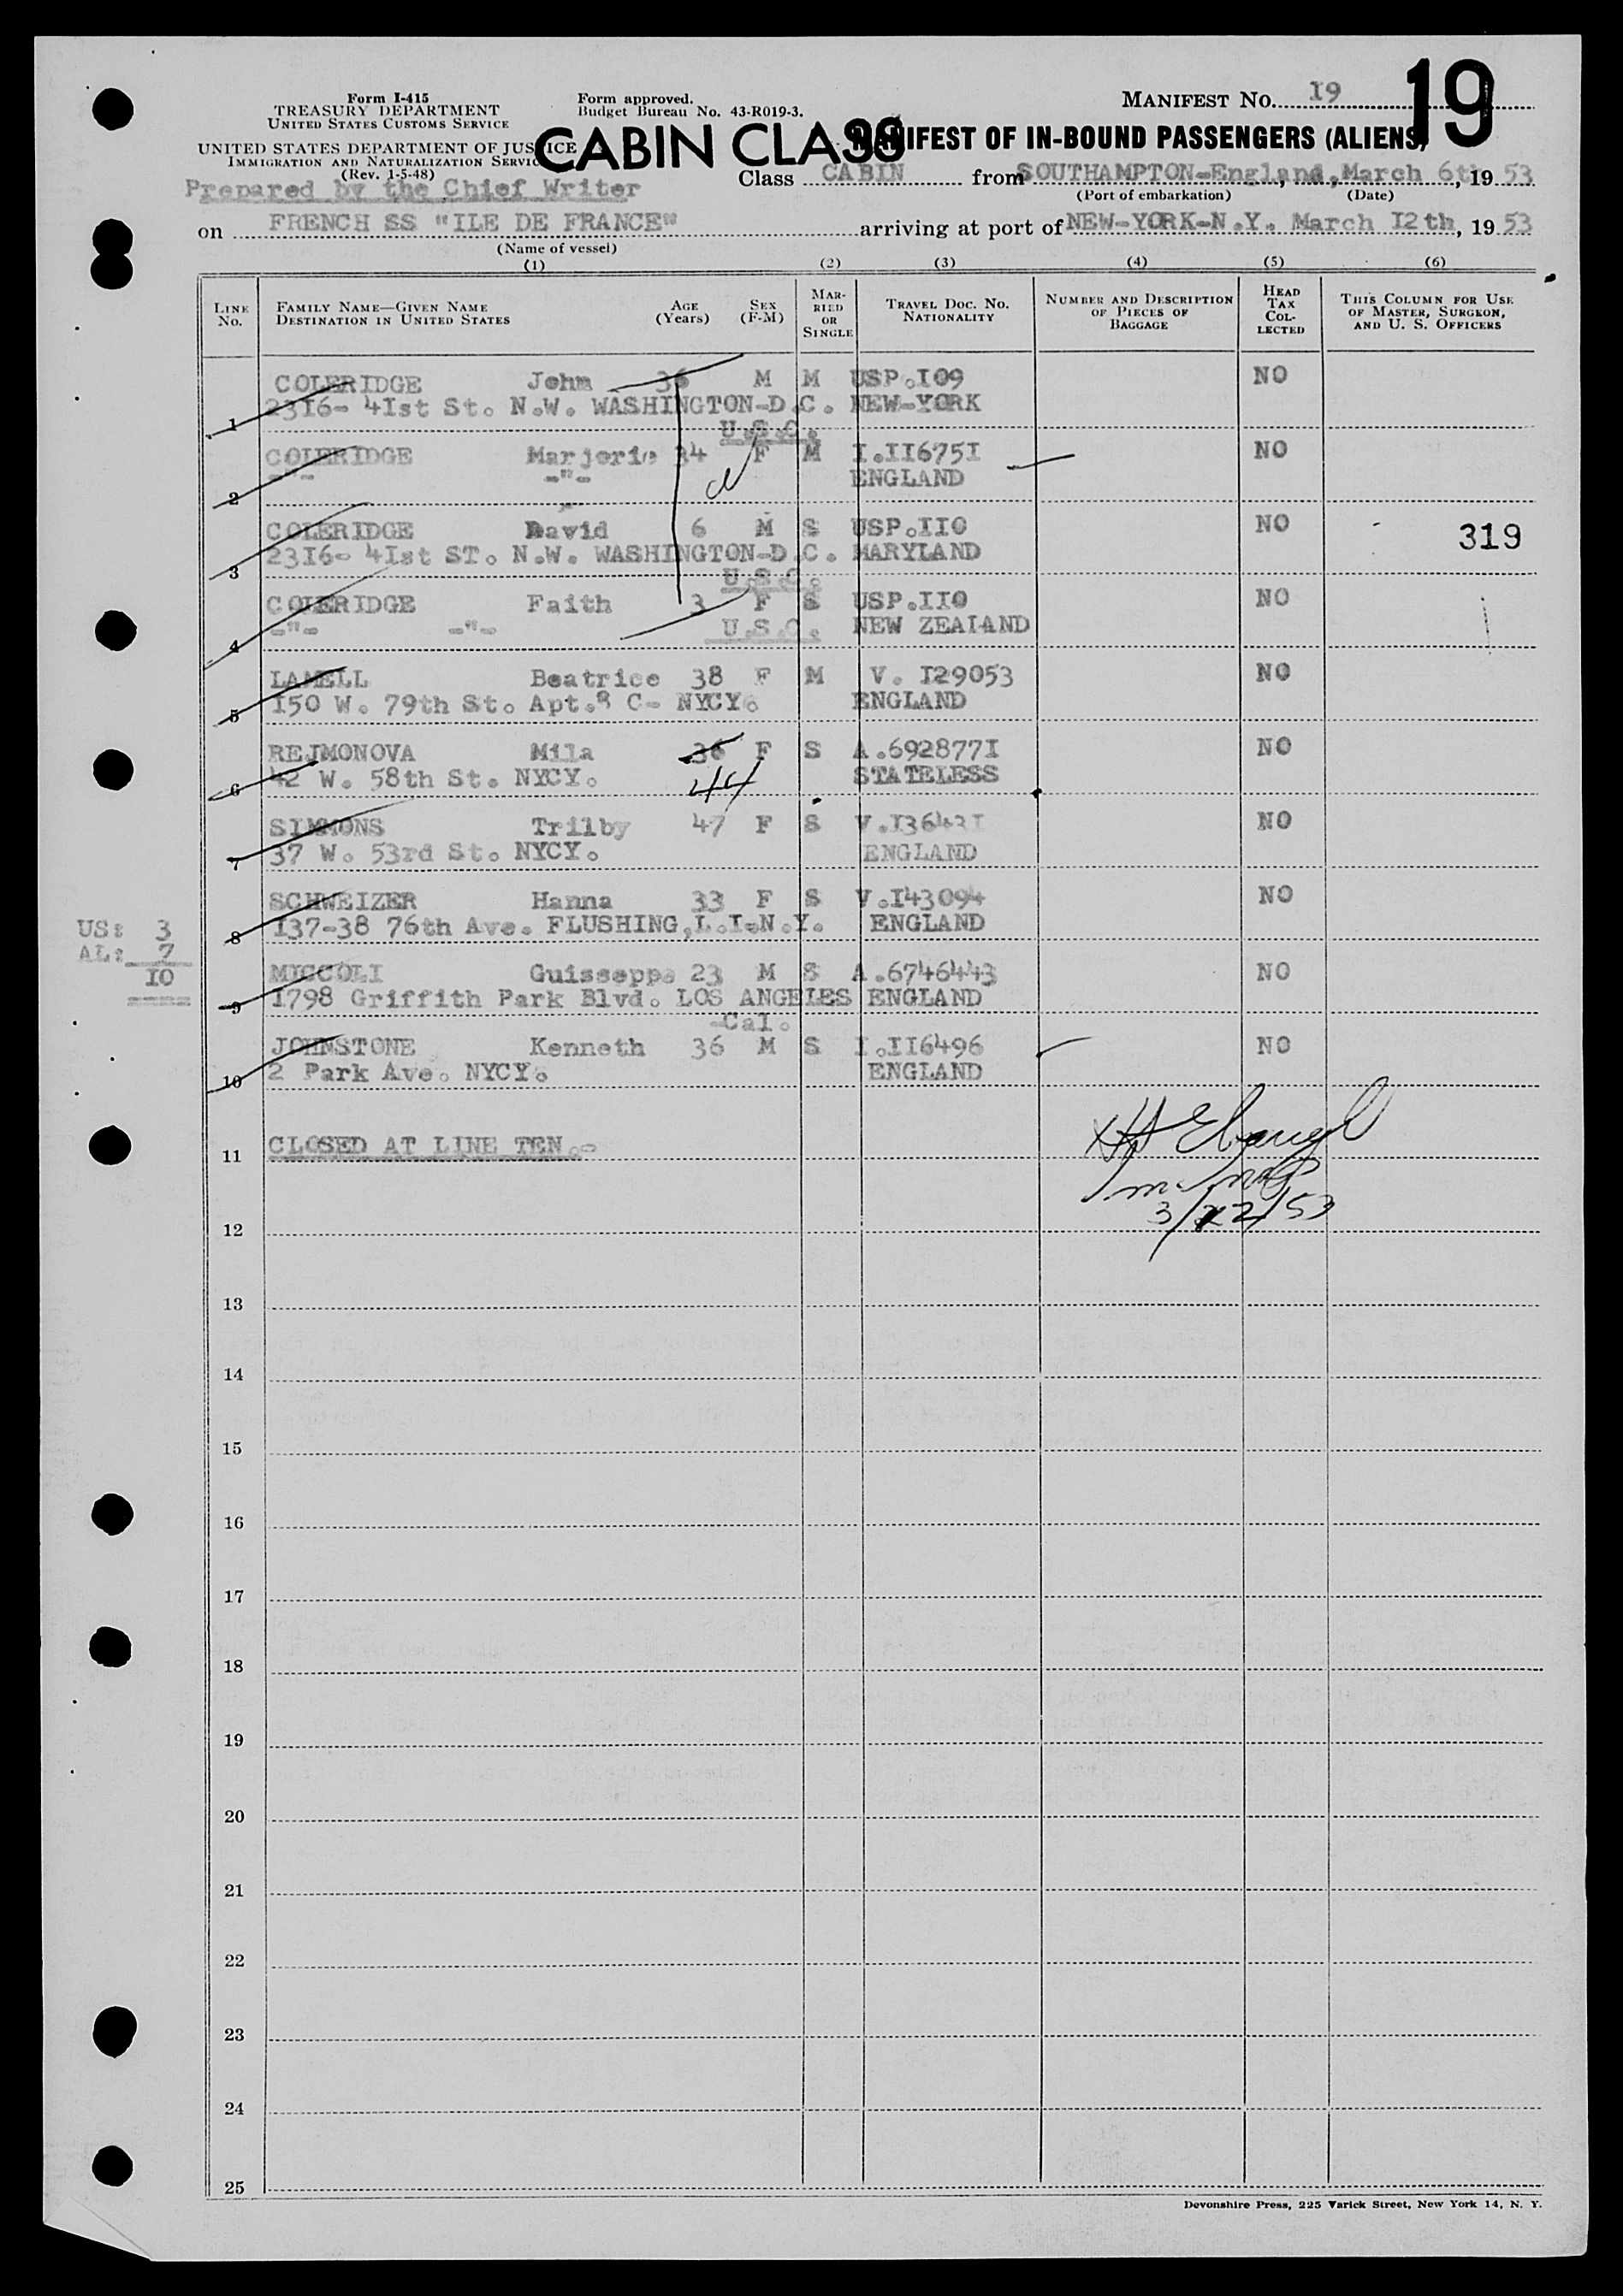 Form I-415
TREASURY DEPARTMENT
UNITED STATES CUSTOMS SERVICE
UNITED STATES DEPARTMENT OF JUSTICE
IMMIGRATION AND NATURALIZATION SERVICE
(Rev. 1-5-48)
Form approved.
Budget Bureau No. 43-R019-3.
MANIFEST No. 19
19
CABIN CLASS
MANIFEST OF IN-BOUND PASSENGERS (ALIENS)
Prepared by the Chief Writer
Class CABIN from SOUTHAMPTON-England, March 6th, 19 53
(Port of embarkation) (Date)
on FRENCH SS "ILE DE FRANCE" arriving at port of NEW-YORK-N.Y. March I2th, 19 53
(Name of vessel)
(1) (2) (3) (4) (5) (6)
LINE No. FAMILY NAME—GIVEN NAME DESTINATION IN UNITED STATES AGE (Years) SEX (F-M) MARRIED OR SINGLE TRAVEL DOC. NO. NATIONALITY NUMBER AND DESCRIPTION OF PIECES OF BAGGAGE HEAD TAX COLLECTED THIS COLUMN FOR USE OF MASTER, SURGEON, AND U. S. OFFICERS
COLERIDGE John 36 M M USP.I09 NO
1 23I6- 4Ist St. N.W. WASHINGTON-D.C. NEW-YORK
U.S.C.
COLERIDGE Marjorie 34 F M I.II675I NO
2 -"- -"- ENGLAND
COLERIDGE David 6 M S USP.IIO NO 319
3 23I6- 4Ist ST. N.W. WASHINGTON-D.C. MARYLAND
U.S.C.
COLERIDGE Faith 3 F S USP.IIO NO
4 -"- -"- U.S.C. NEW ZEALAND
LAMELL Beatrice 38 F M V. I29053 NO
5 I50 W. 79th St. Apt.8 C- NYCY. ENGLAND
REJMONOVA Mila 36 F S A.692877I NO
6 42 W. 58th St. NYCY. 44 STATELESS
SIMMONS Trilby 47 F S V.I3643I NO
7 37 W. 53rd St. NYCY. ENGLAND
SCHWEIZER Hanna 33 F S V.I43094 NO
8 I37-38 76th Ave. FLUSHING,L.I-N.Y. ENGLAND
US: 3
AL: 7
IO
MICCOLI Guisseppe 23 M S A.6746443 NO
9 I798 Griffith Park Blvd. LOS ANGELES ENGLAND
-Cal.
JOHNSTONE Kenneth 36 M S I.II6496 NO
10 2 Park Ave. NYCY. ENGLAND
11 CLOSED AT LINE TEN.-
12
13
14
15
16
17
18
19
20
21
22
23
24
25
Devonshire Press, 225 Varick Street, New York 14, N. Y.